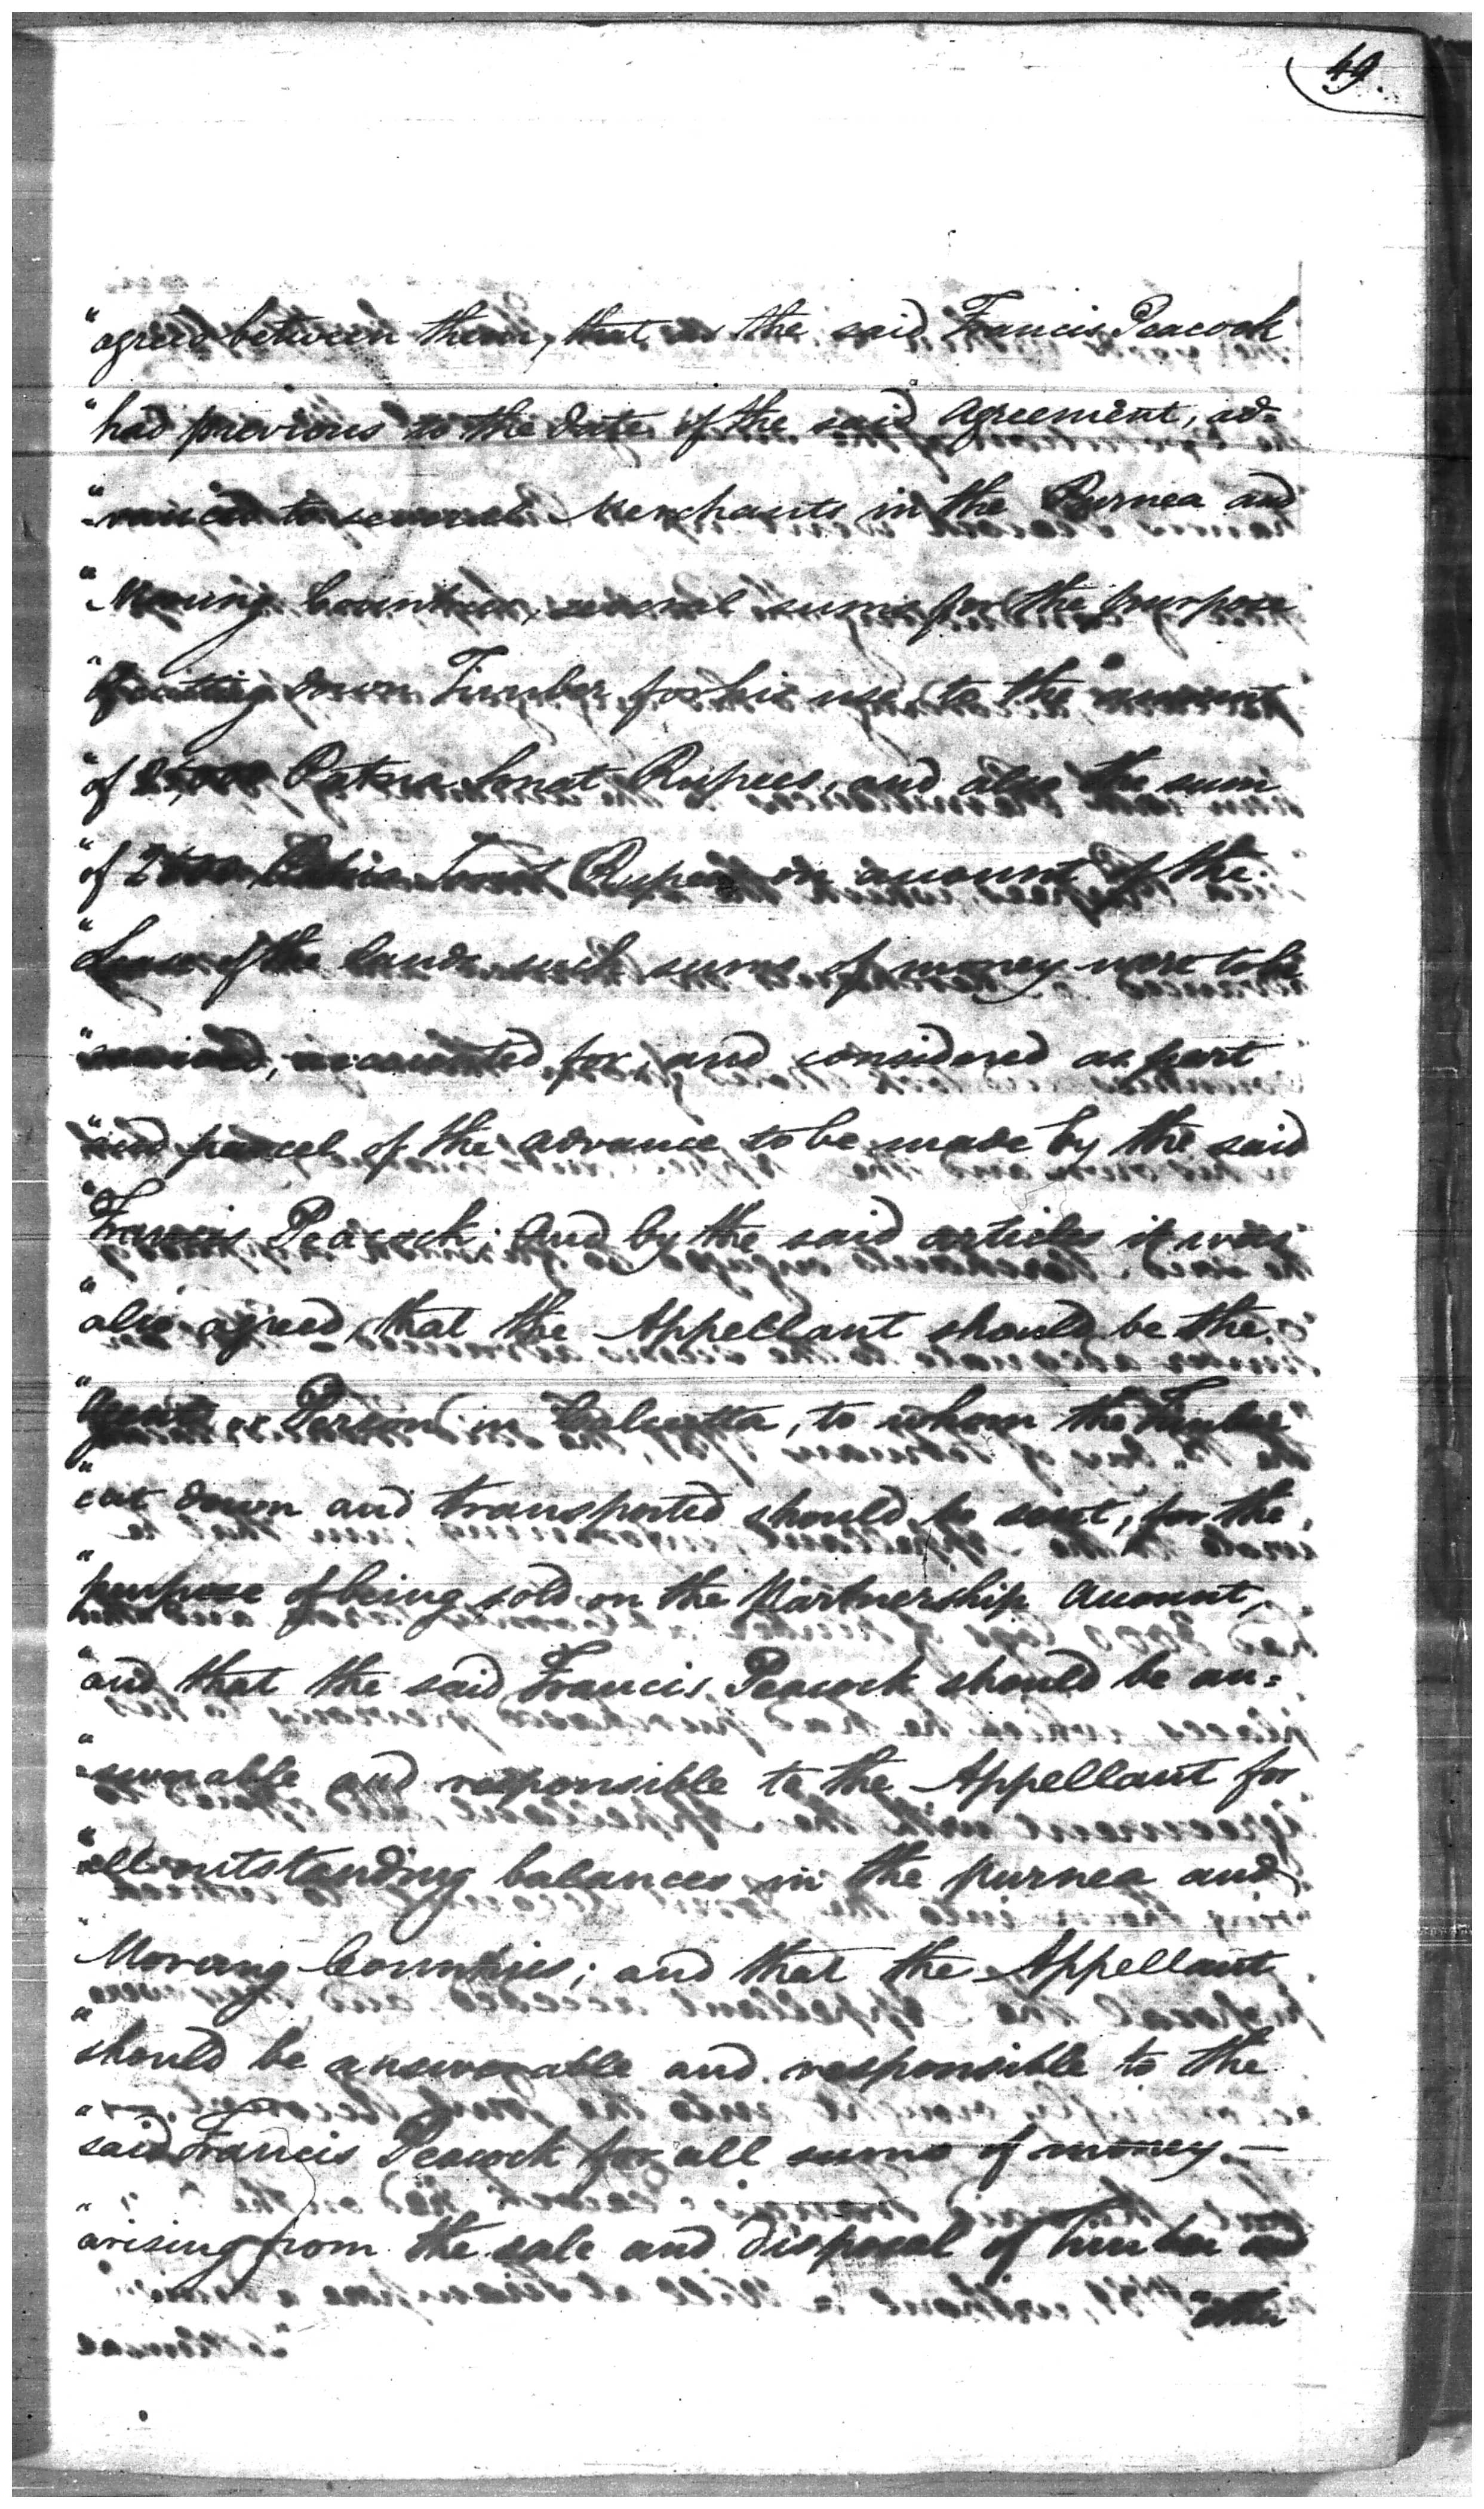 49.
"agreed between them, that as the said Francis Peacock
"had previous to the date of the said Agreement, ad=
"=vanced to several Merchants in the Purnea and
"Morung Countries, several sums for the purpose
"of cutting down Timber for his use, to the amount
"of Patna Sonat Rupees, and also the sum
"of Rupees on account of the
"Lease of the lands such sums of money were to be
"received, accounted for, and considered as part
"and parcel of the advance to be made by the said
"Francis Peacock; And by the said articles it was
"also agreed, that the Appellant should be the
"Agent or Person in Calcutta, to whom the Timber
"cut down and transported should be sent, for the
"purpose of being sold on the Partnership Account,
"and that the said Francis Peacock should be an=
"=swerable and responsible to the Appellant for
"all outstanding balances in the purnea and
"Morung Countries; and that the Appellant
"should be answerable and responsible to the
"said Francis Peacock for all sums of money —
"arising from the sale and disposal of Timber and
"other